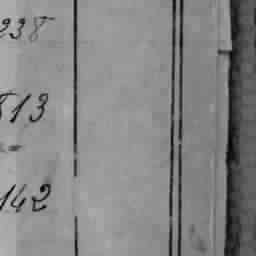 238
513
142